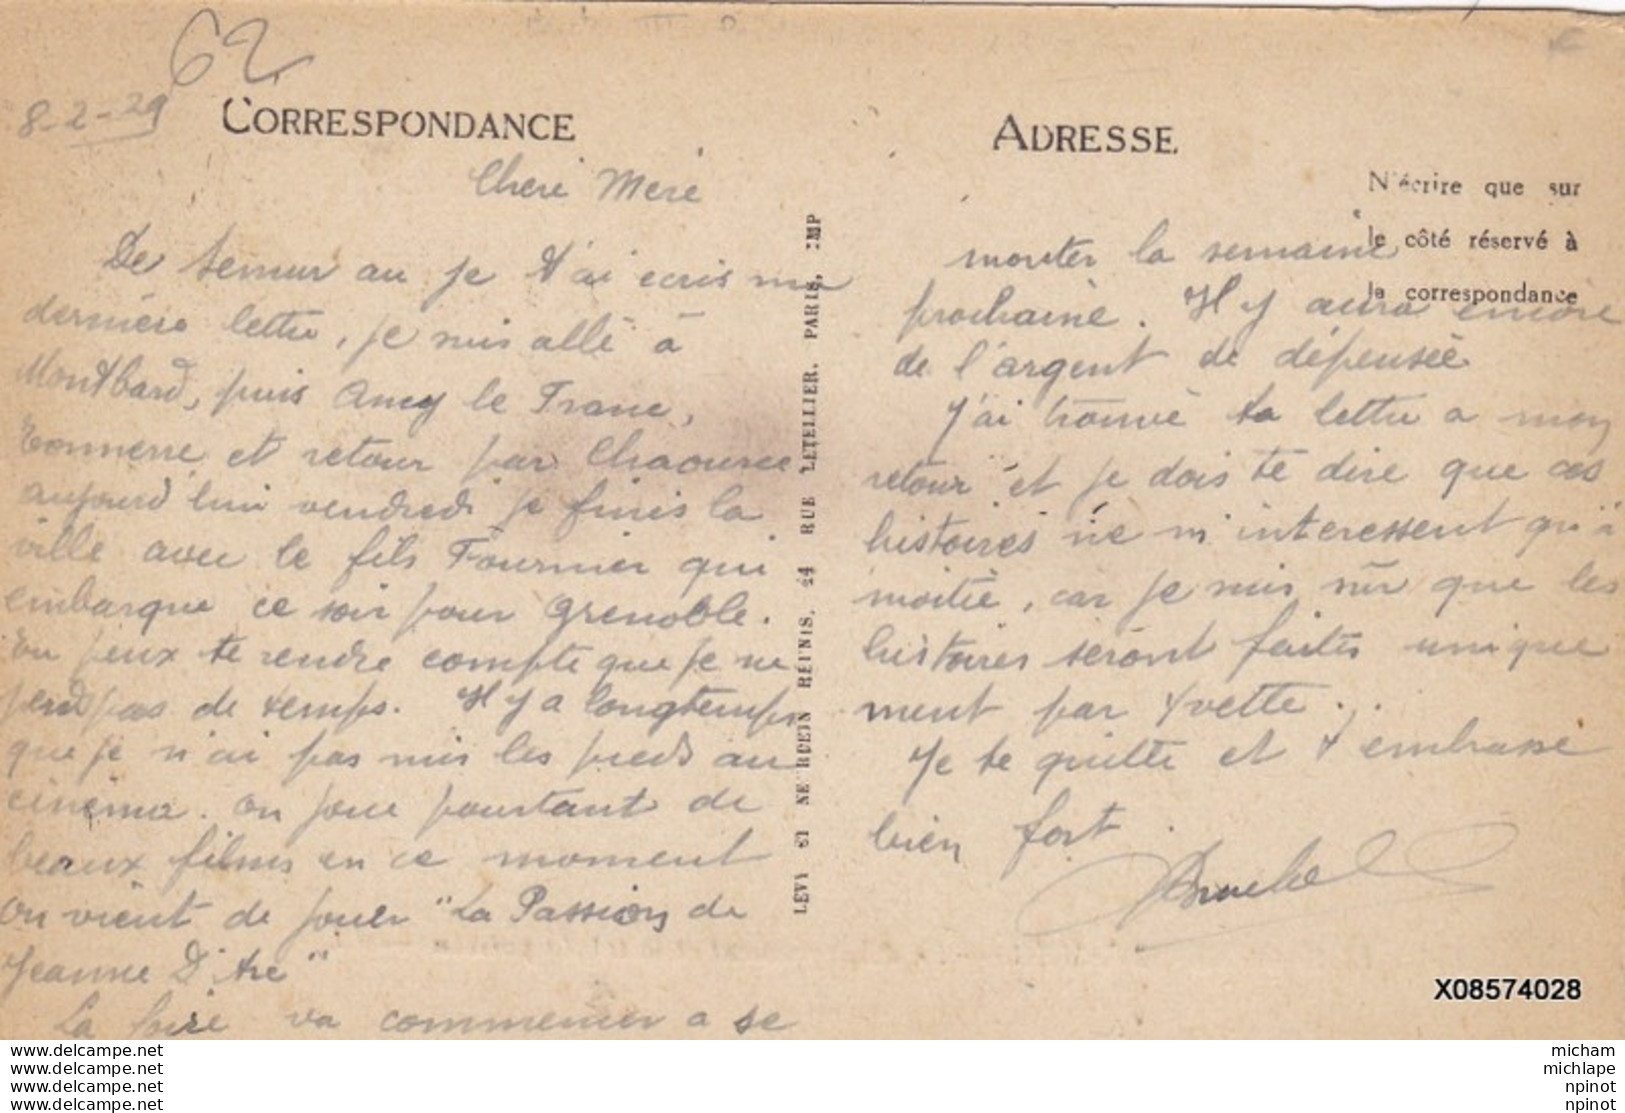 62
8-2-29
CORRESPONDANCE
Cheré Meré
De Semur au je t'ai ecris ma
derniére lettre, je suis allé à
Montbard, puis Ancy le Franc,
Tonnerre et retour par Chaource
aujourd'hui vendredi je finis la
ville avec le fils Fournier qui
embarque ce soir pour Grenoble.
Tu peux te rendre compte que je ne
perd pas de temps. Il y a longtemps
que je n'ai pas mis les pieds au
cinéma. On joue pourtant de
beaux films en ce moment
On vient de jouer "La Passion de
Jeanne D'Arc"
La foire va commencer a se
LEVY ET NEURDEIN REUNIS, 44 RUE LETELLIER, PARIS, IMP
ADRESSE
N'écrire que sur
le côté réservé à
la correspondance
monter la semaine
prochaine. Il y aura encore
de l'argent de dépensée
J'ai trouvé ta lettre a mon
retour et je dois te dire que ces
histoires ne m'interessent qu'à
moitié, car je suis sûr que les
histoires seront faites unique
ment par Yvette...
Je te quitte et t'embrasse
bien fort.
X08574028
www.delcampe.net
www.delcampe.net
www.delcampe.net
www.delcampe.net
micham
michlape
npinot
npinot